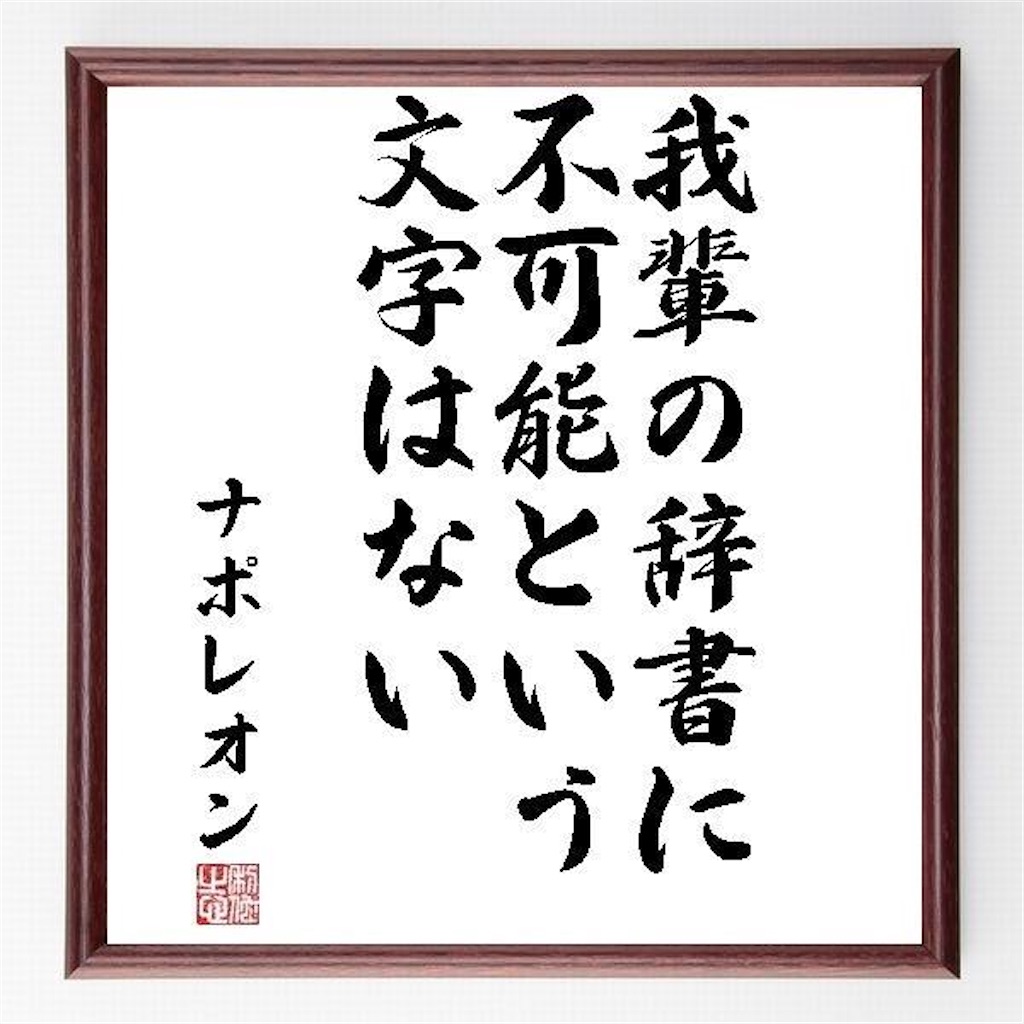 我輩の辞書に
不可能という
文字はない
ナポレオン